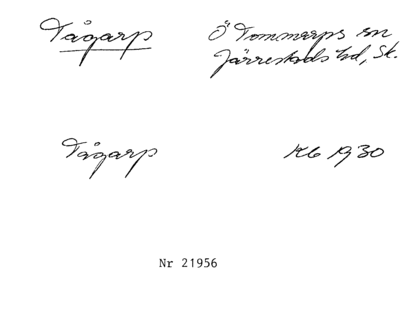 Tågarp Ö Tommarps sn
Järrestads hd, Sk.
Tågarp Kb 1930
Nr 21956